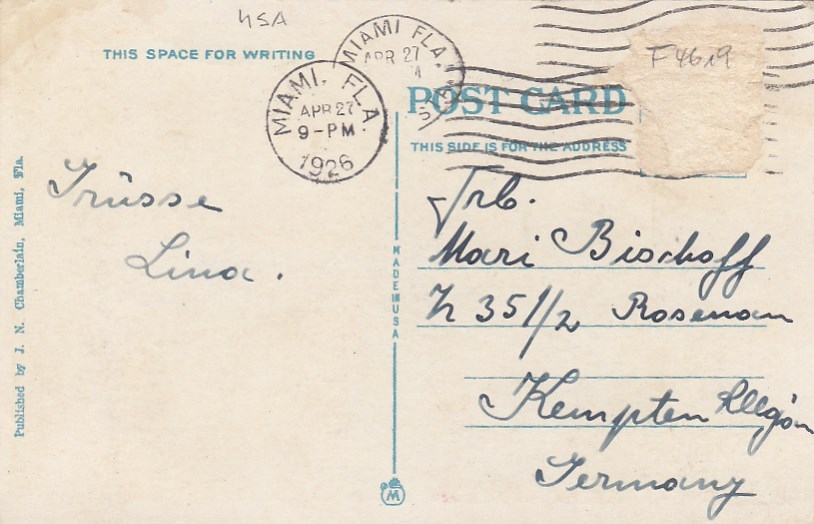 USA
THIS SPACE FOR WRITING
MIAMI, FLA.
APR 27
9-PM
1926
MIAMI FLA.
APR 27
POST CARD
THIS SIDE IS FOR THE ADDRESS
F4619
Grüsse
Lina.
Frl.
Mari Bischoff
H 35 1/2 Rosenau
Kempten Allgäu
Germany
MADE IN USA
M
Published by J. N. Chamberlain, Miami, Fla.